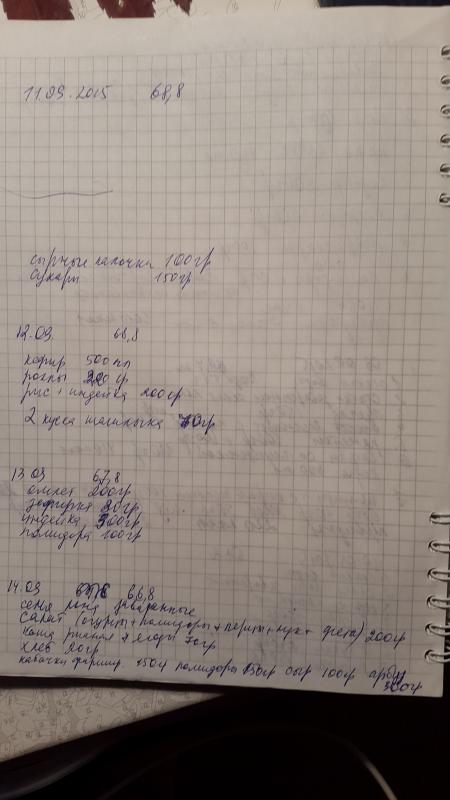 11.09.2015 68,8
сырные палочки 100гр
сухари 150гр
12.09. 68,8
кефир 500 мл
роллы 220 гр
рис + индейка 200гр
2 куска шашлыка 70гр
13.09 67,8
омлет 200гр
зефирка 20гр
индейка 300гр
помидора 100гр
14.09 66,8
семя льна заваренные
салат (огурцы + помидоры + перцы + лук + фета) 200гр
каша рисная + ягоды 70гр
хлеб 20гр
кабачки фаршир. 150гр помидоры 150гр сыр 100гр арбуз
300гр